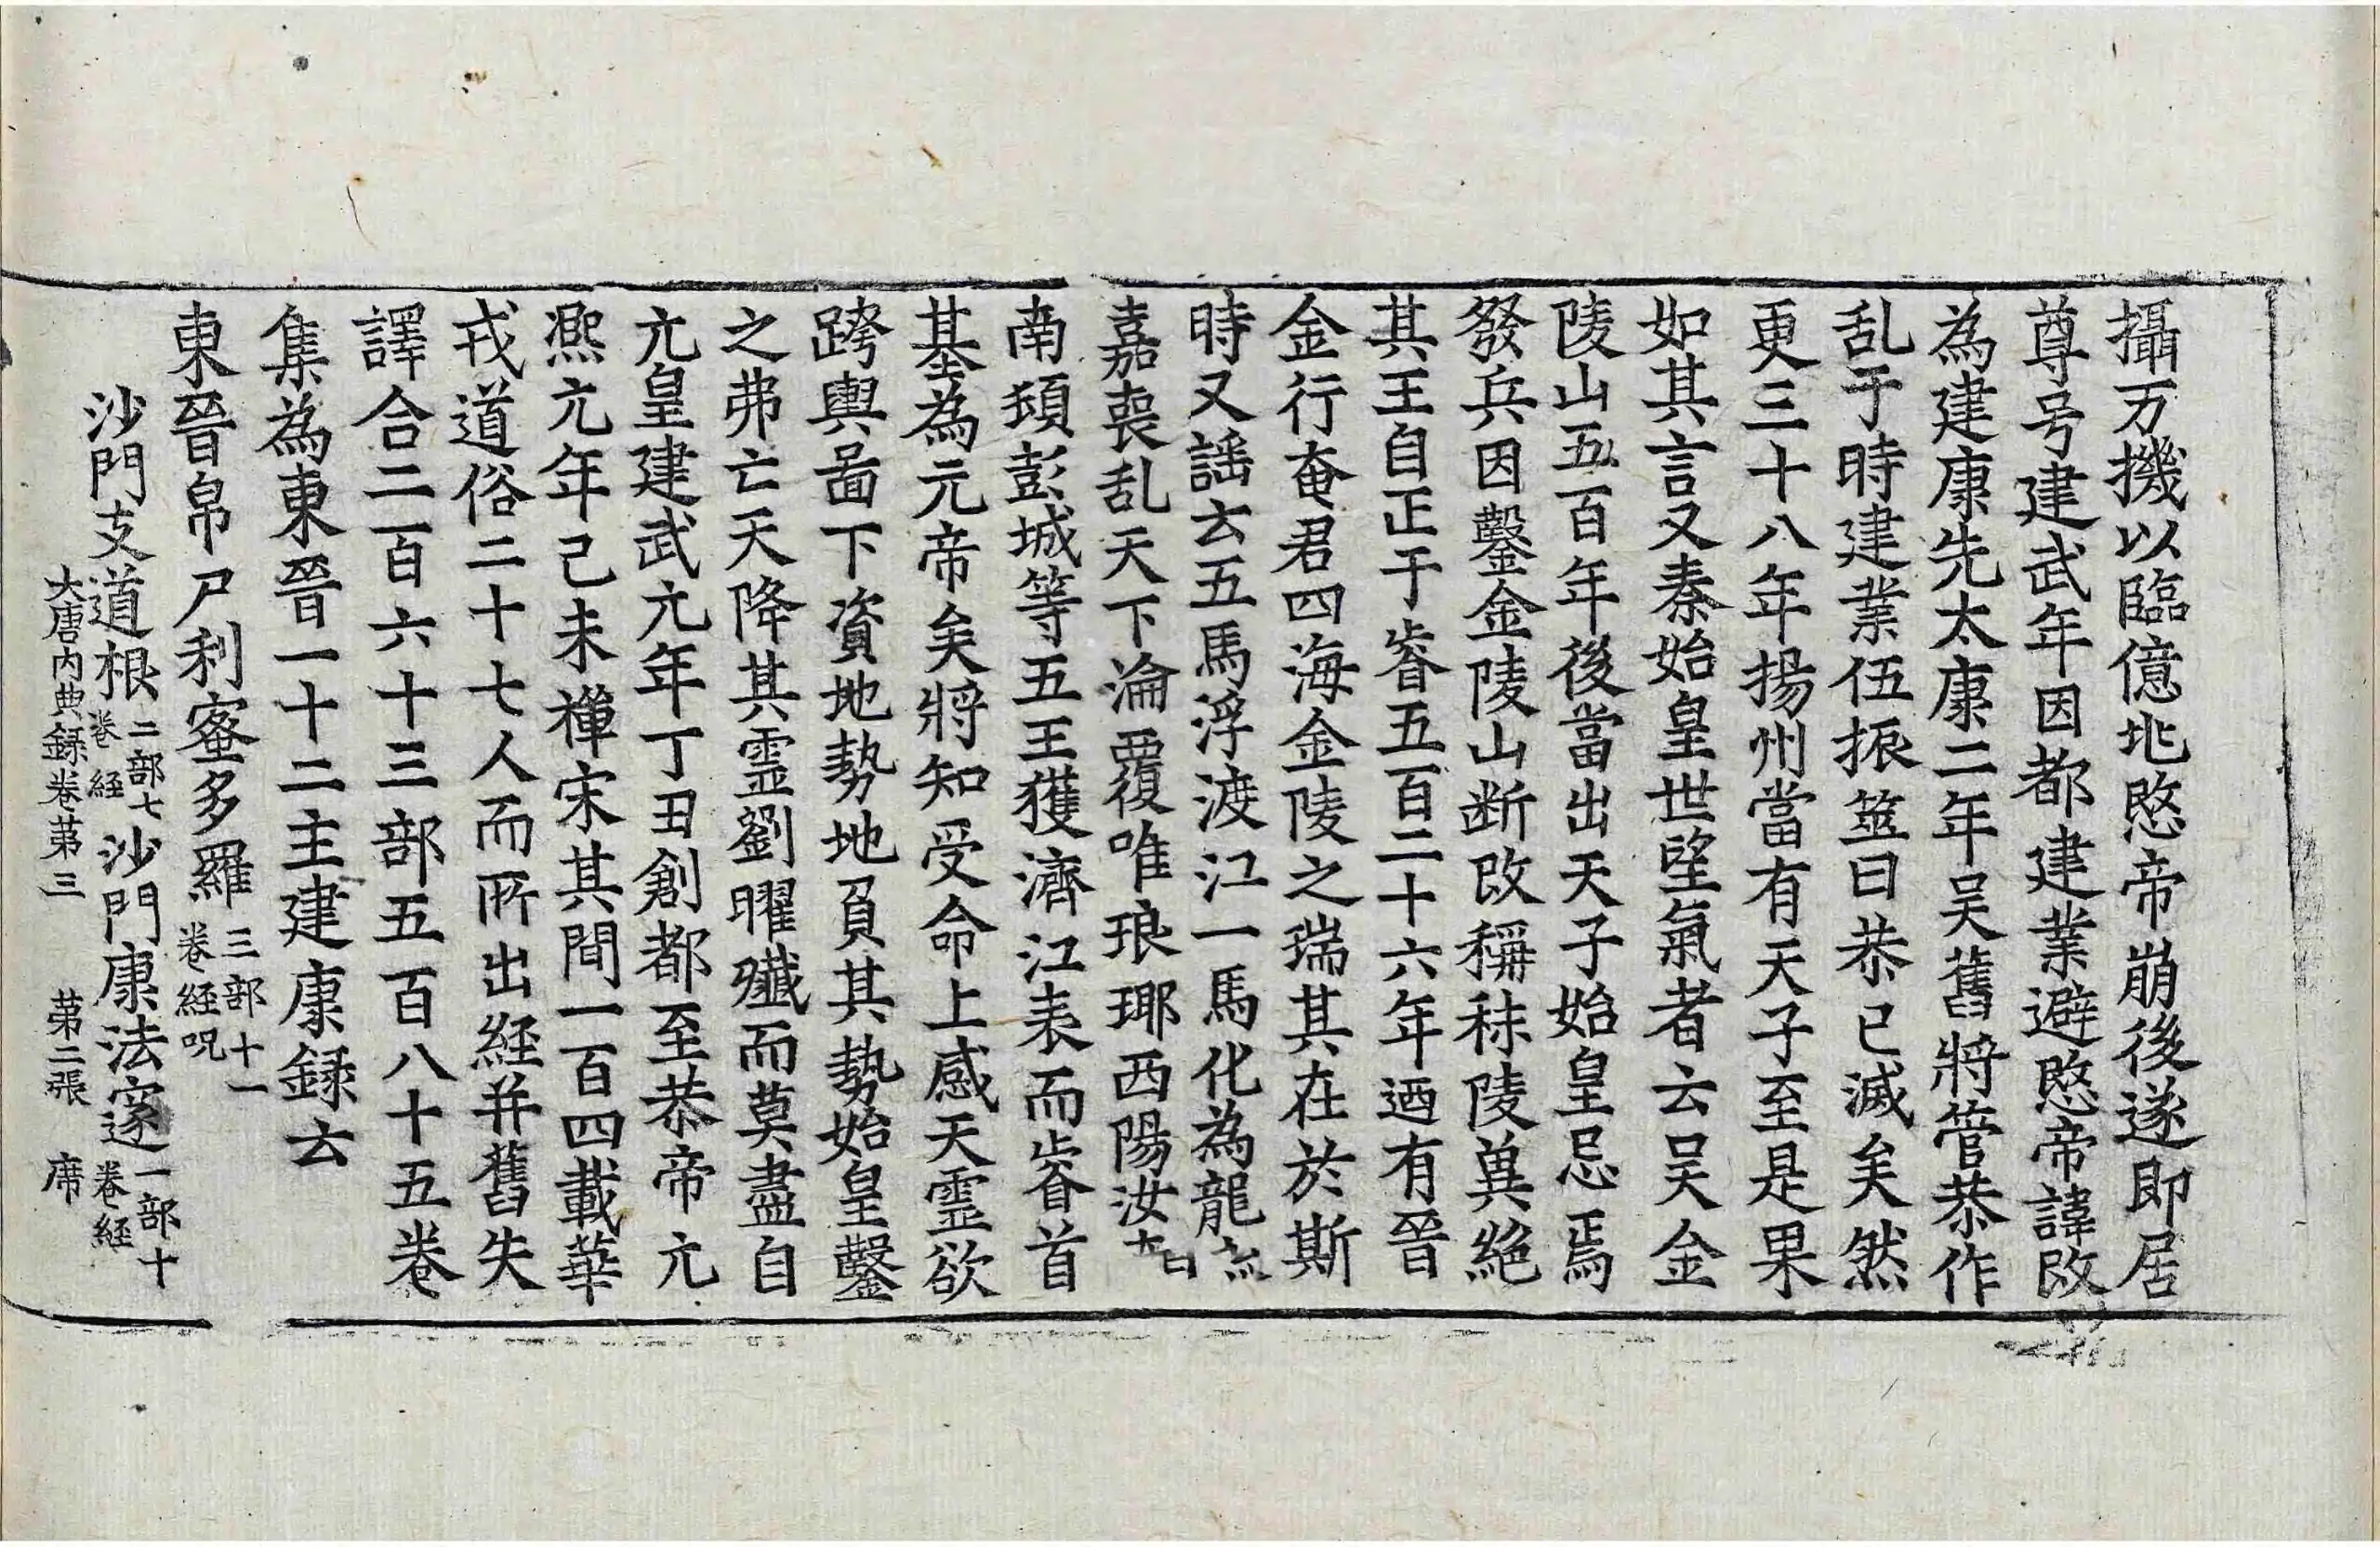 攝万機以臨億兆愍帝崩後遂即居
尊号建武年因都建業避愍帝諱改
為建康先太康二年吴舊將管恭作
乱于時建業伍振筮曰恭已滅矣然
更三十八年揚州當有天子至是果
如其言又秦始皇世望氣者云吴金
陵山五百年後當出天子始皇忌焉
發兵因鑿金陵山断改稱秣陵兾絕
其王自正于睿五百二十六年迺有晉
金行奄君四海金陵之瑞其在於斯
時又謡云五馬浮渡江一馬化為龍
嘉喪乱天下淪覆唯琅瑘西陽汝
南頓彭城等五王獲濟江表而睿首
基為元帝矣將知受命上感天靈欲
跨輿啚下資地勢地負其勢始皇鑿
之弗亡天降其靈劉曜殲而莫盡自
元皇建武元年丁丑創都至恭帝元
熈元年己未禪宋其間一百四載華
戎道俗二十七人而所出経并舊失
譯合二百六十三部五百八十五卷
集為東晉一十二主建康録云
東晉帛尸利蜜多羅三部十一卷経呪
沙門支道根二部七卷経沙門康法邃一部十卷経
大唐内典録卷苐三 苐二張 席